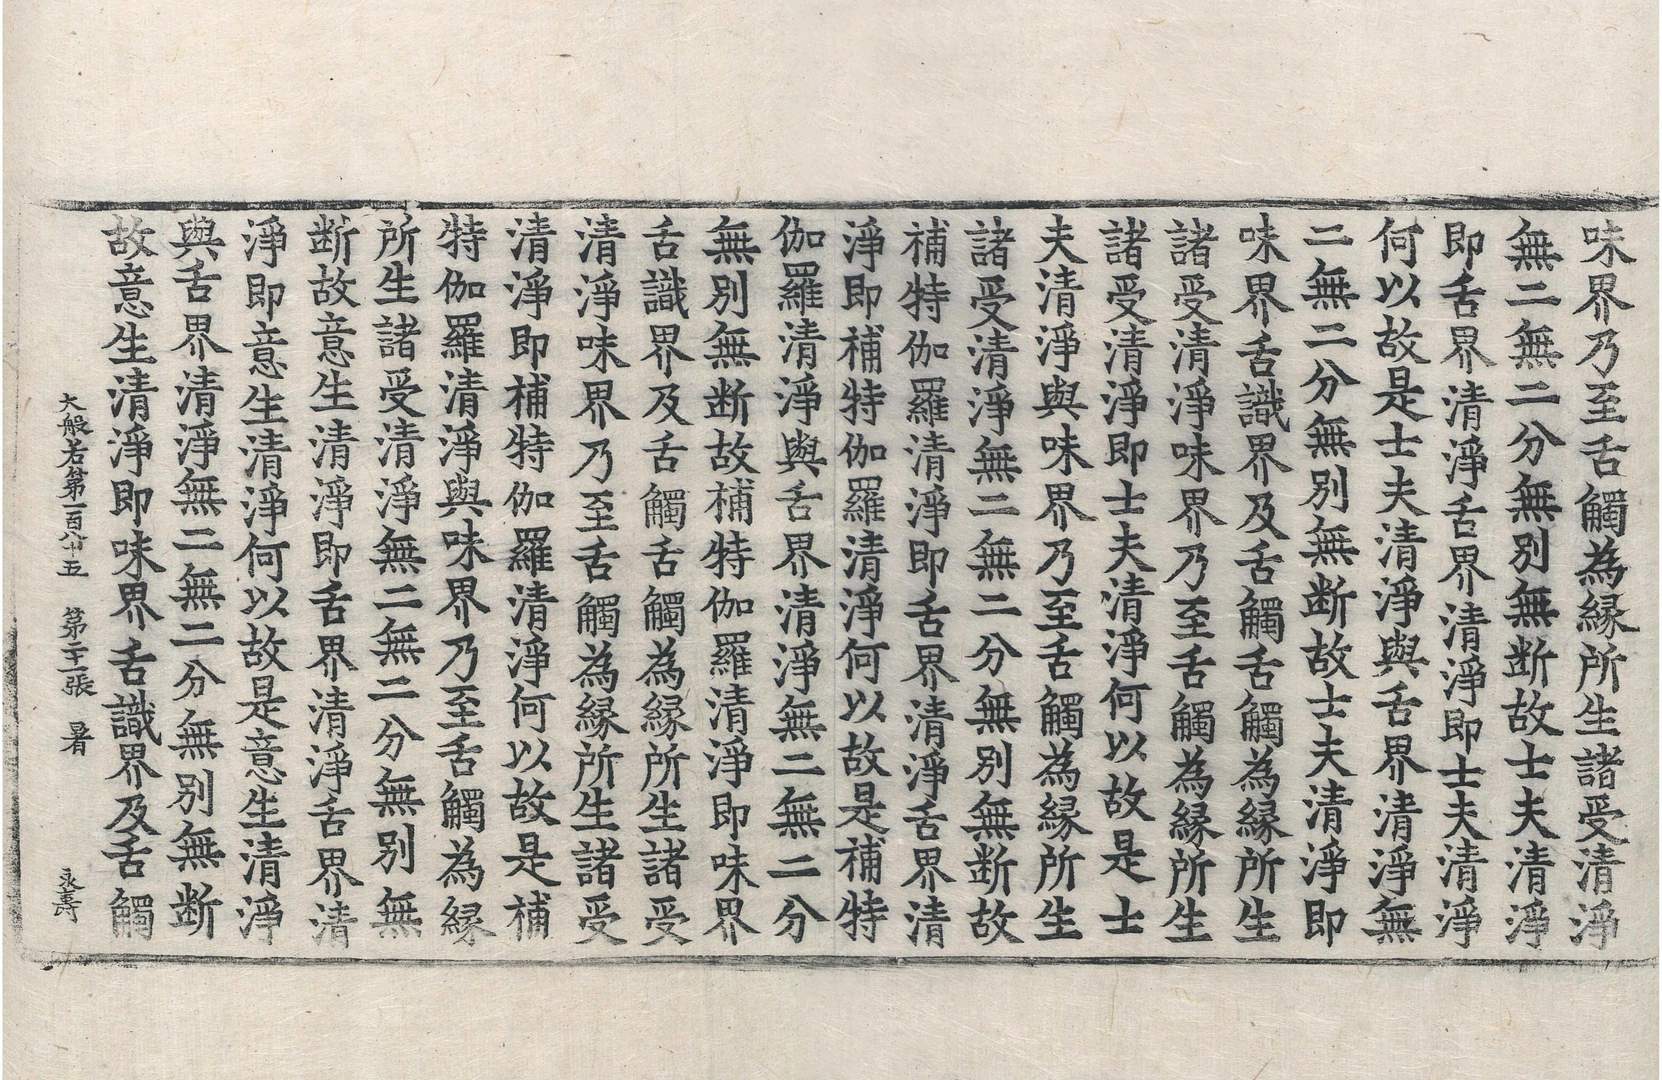 味界乃至舌觸為縁所生諸受清淨
無二無二分無別無断故士夫清淨
即舌界清淨舌界清淨即士夫清淨
何以故是士夫清淨與舌界清淨無
二無二分無別無断故士夫清淨即
味界舌識界及舌觸舌觸為縁所生
諸受清淨味界乃至舌觸為縁所生
諸受清淨即士夫清淨何以故是士
夫清淨與味界乃至舌觸為縁所生
諸受清淨無二無二分無別無断故
補特伽羅清淨即舌界清淨舌界清
淨即補特伽羅清淨何以故是補特
伽羅清淨與舌界清淨無二無二分
無別無断故補特伽羅清淨即味界
舌識界及舌觸舌觸為縁所生諸受
清淨味界乃至舌觸為縁所生諸受
清淨即補特伽羅清淨何以故是補
特伽羅清淨與味界乃至舌觸為縁
所生諸受清淨無二無二分無別無
断故意生清淨即舌界清淨舌界清
淨即意生清淨何以故是意生清淨
與舌界清淨無二無二分無別無断
故意生清淨即味界舌識界及舌觸
大般若第一百八十五 第二十張 暑 永壽